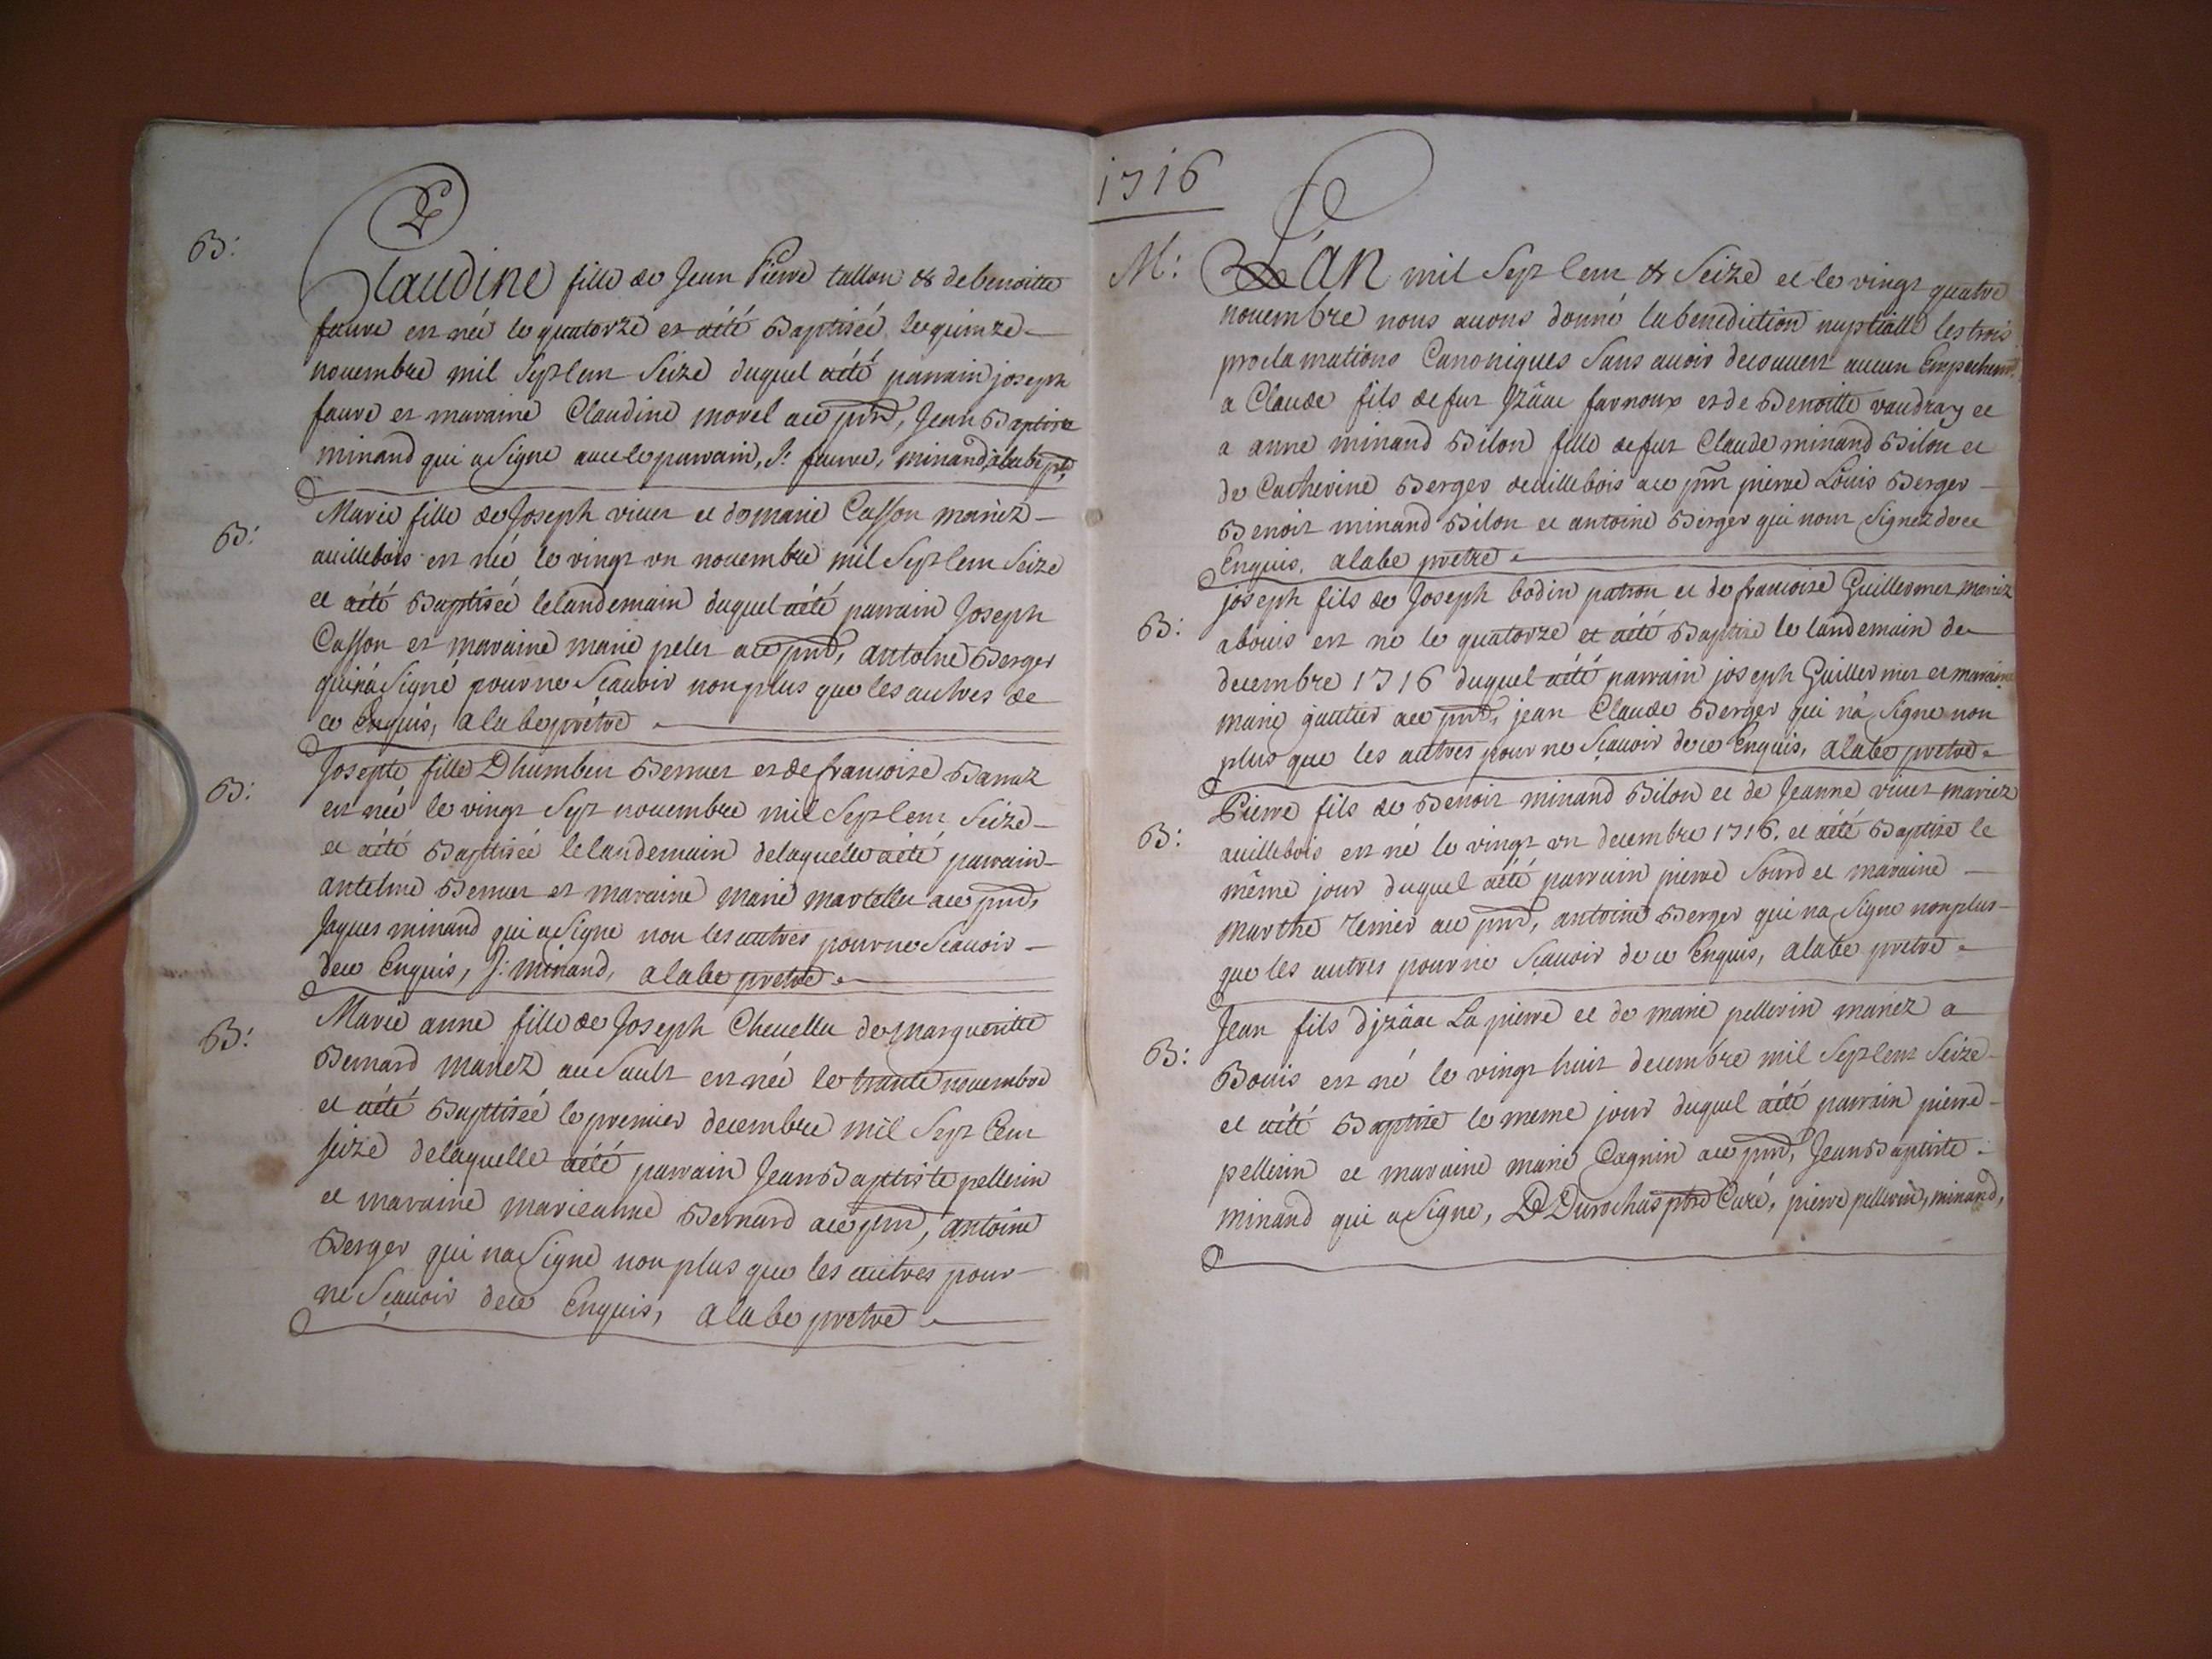 B:
Claudine fille de Jean Pierre tallon & de benoitte
fauve est née le quatorze et aété Baptisée le quinze
novembre mil Sept Cent Seize duquel aété parrain joseph
fauve et maraine Claudine morel ace prnt, Jean Baptiste
minand qui a Signe avec le parrain, J: fauve, minand, alabe ptre,
B:
Marie fille de Joseph vivier et de marie Casson mariéz
avillebois est née le vingt un novembre mil Sept Cent Seize
et aété Baptisée le landemain duquel aété parrain Joseph
Casson et maraine marie pelet ace prnt, antoine Berger
qui na Signé pour ne Scavoir non plus que les autres de
ce Enquis, alabe prêtre
B:
Josepte fille Dhumbert Bernier et de francoise
est née le vingt Sept novembre mil Sept Cent Seize
et aété Baptisée le landemain delaquelle aété parrain
antelme Bernier et maraine marie ace prnt,
Jaques minand qui a Signe non les autres pour ne Scavoir
dece Enquis, J: minand, alabe pretre
B:
Marie anne fille de Joseph de Margueritte
Bernard mariez au Sault est née le trante novembre
et aété Baptisée le premier decembre mil Sept Cent
seize delaquelle aété parrain Jean Baptiste pellerin
et maraine marieanne Bernard ace prnt, antoine
Berger qui na Signe non plus que les autres pour
ne Sçavoir dece Enquis, alabe pretre
1716
M:
L'an mil Sept Cent & Seize et le vingt quatre
novembre nous avons donné la benediction nuptialle les trois
proclamations Canoniques Sans avoir decouvert aucun Empechemt
a Claude fils de fut Jzâac farnoux et de Benoitte vaudray et
a anne minand Bilon fille de fut Claude minand Bilon et
de Catherine Berger devillebois ace prnt pierre Louis Berger
Benoit minand Bilon et antoine Berger qui nont Signez dece
Enquis. alabe pretre
B:
joseph fils de Joseph bodin patron et de francoise Guillermet mariéz
abouis est né le quatorze et aété Baptize le landemain de
decembre 1716 duquel aété parrain joseph Guillermet et maraine
marie gautier ace prnt, jean Claude Berger qui nà Signe non
plus que les autres pour ne Sçavoir dece Enquis, alabe pretre
B:
Pierre fils de Benoit minand Bilon et de Jeanne vivier mariéz
avillebois est né le vingt un decembre 1716. et aété Baptize le
même jour duquel aété parrain pierre Sourd et maraine
marthe Tenier ace prnt, antoine Berger qui na Signe non plus
que les autres pour ne Sçavoir de ce Enquis, alabe pretre
B:
Jean fils djzâac La pierre et de marie pellerin mariéz a
Bouis est né le vingt huit decembre mil Sept Cent Seize
et aété Baptize le meme jour duquel aété parrain pierre
pellerin et maraine marie Cagnin ace prnt, Jean Baptiste
minand qui a Signe, Durochas ptre Curé, pierre pellerin, minand,